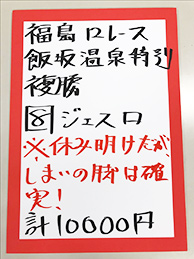 福島10レース
飯坂温泉特別
複勝
8 ジェスロ
※休み明けだが
しまいの脚は確
実!
計10000円